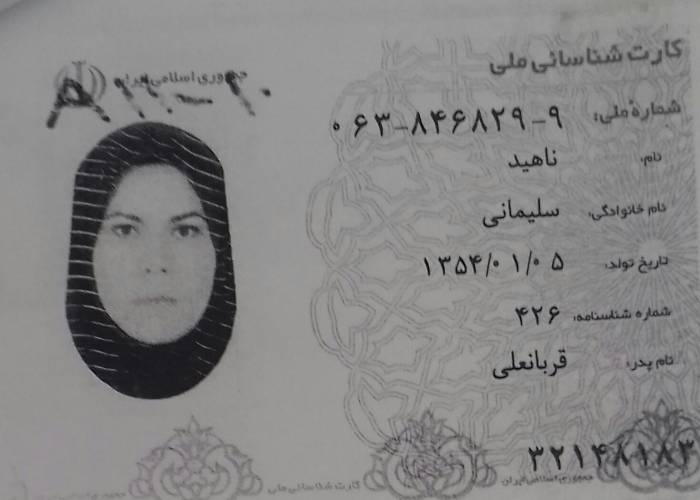 کارت شناسائی ملی
جمهوری اسلامی ایران
شماره ملی: ۰۶۳-۸۴۶۸۲۹-۹
نام: ناهید
نام خانوادگی: سلیمانی
تاریخ تولد: ۱۳۵۴/۰۱/۰۵
شماره شناسنامه: ۴۲۶
نام پدر: قربانعلی
۳۲۱۴۸۱۸۳
جمهوری اسلامی ایران
کارت شناسائی ملی